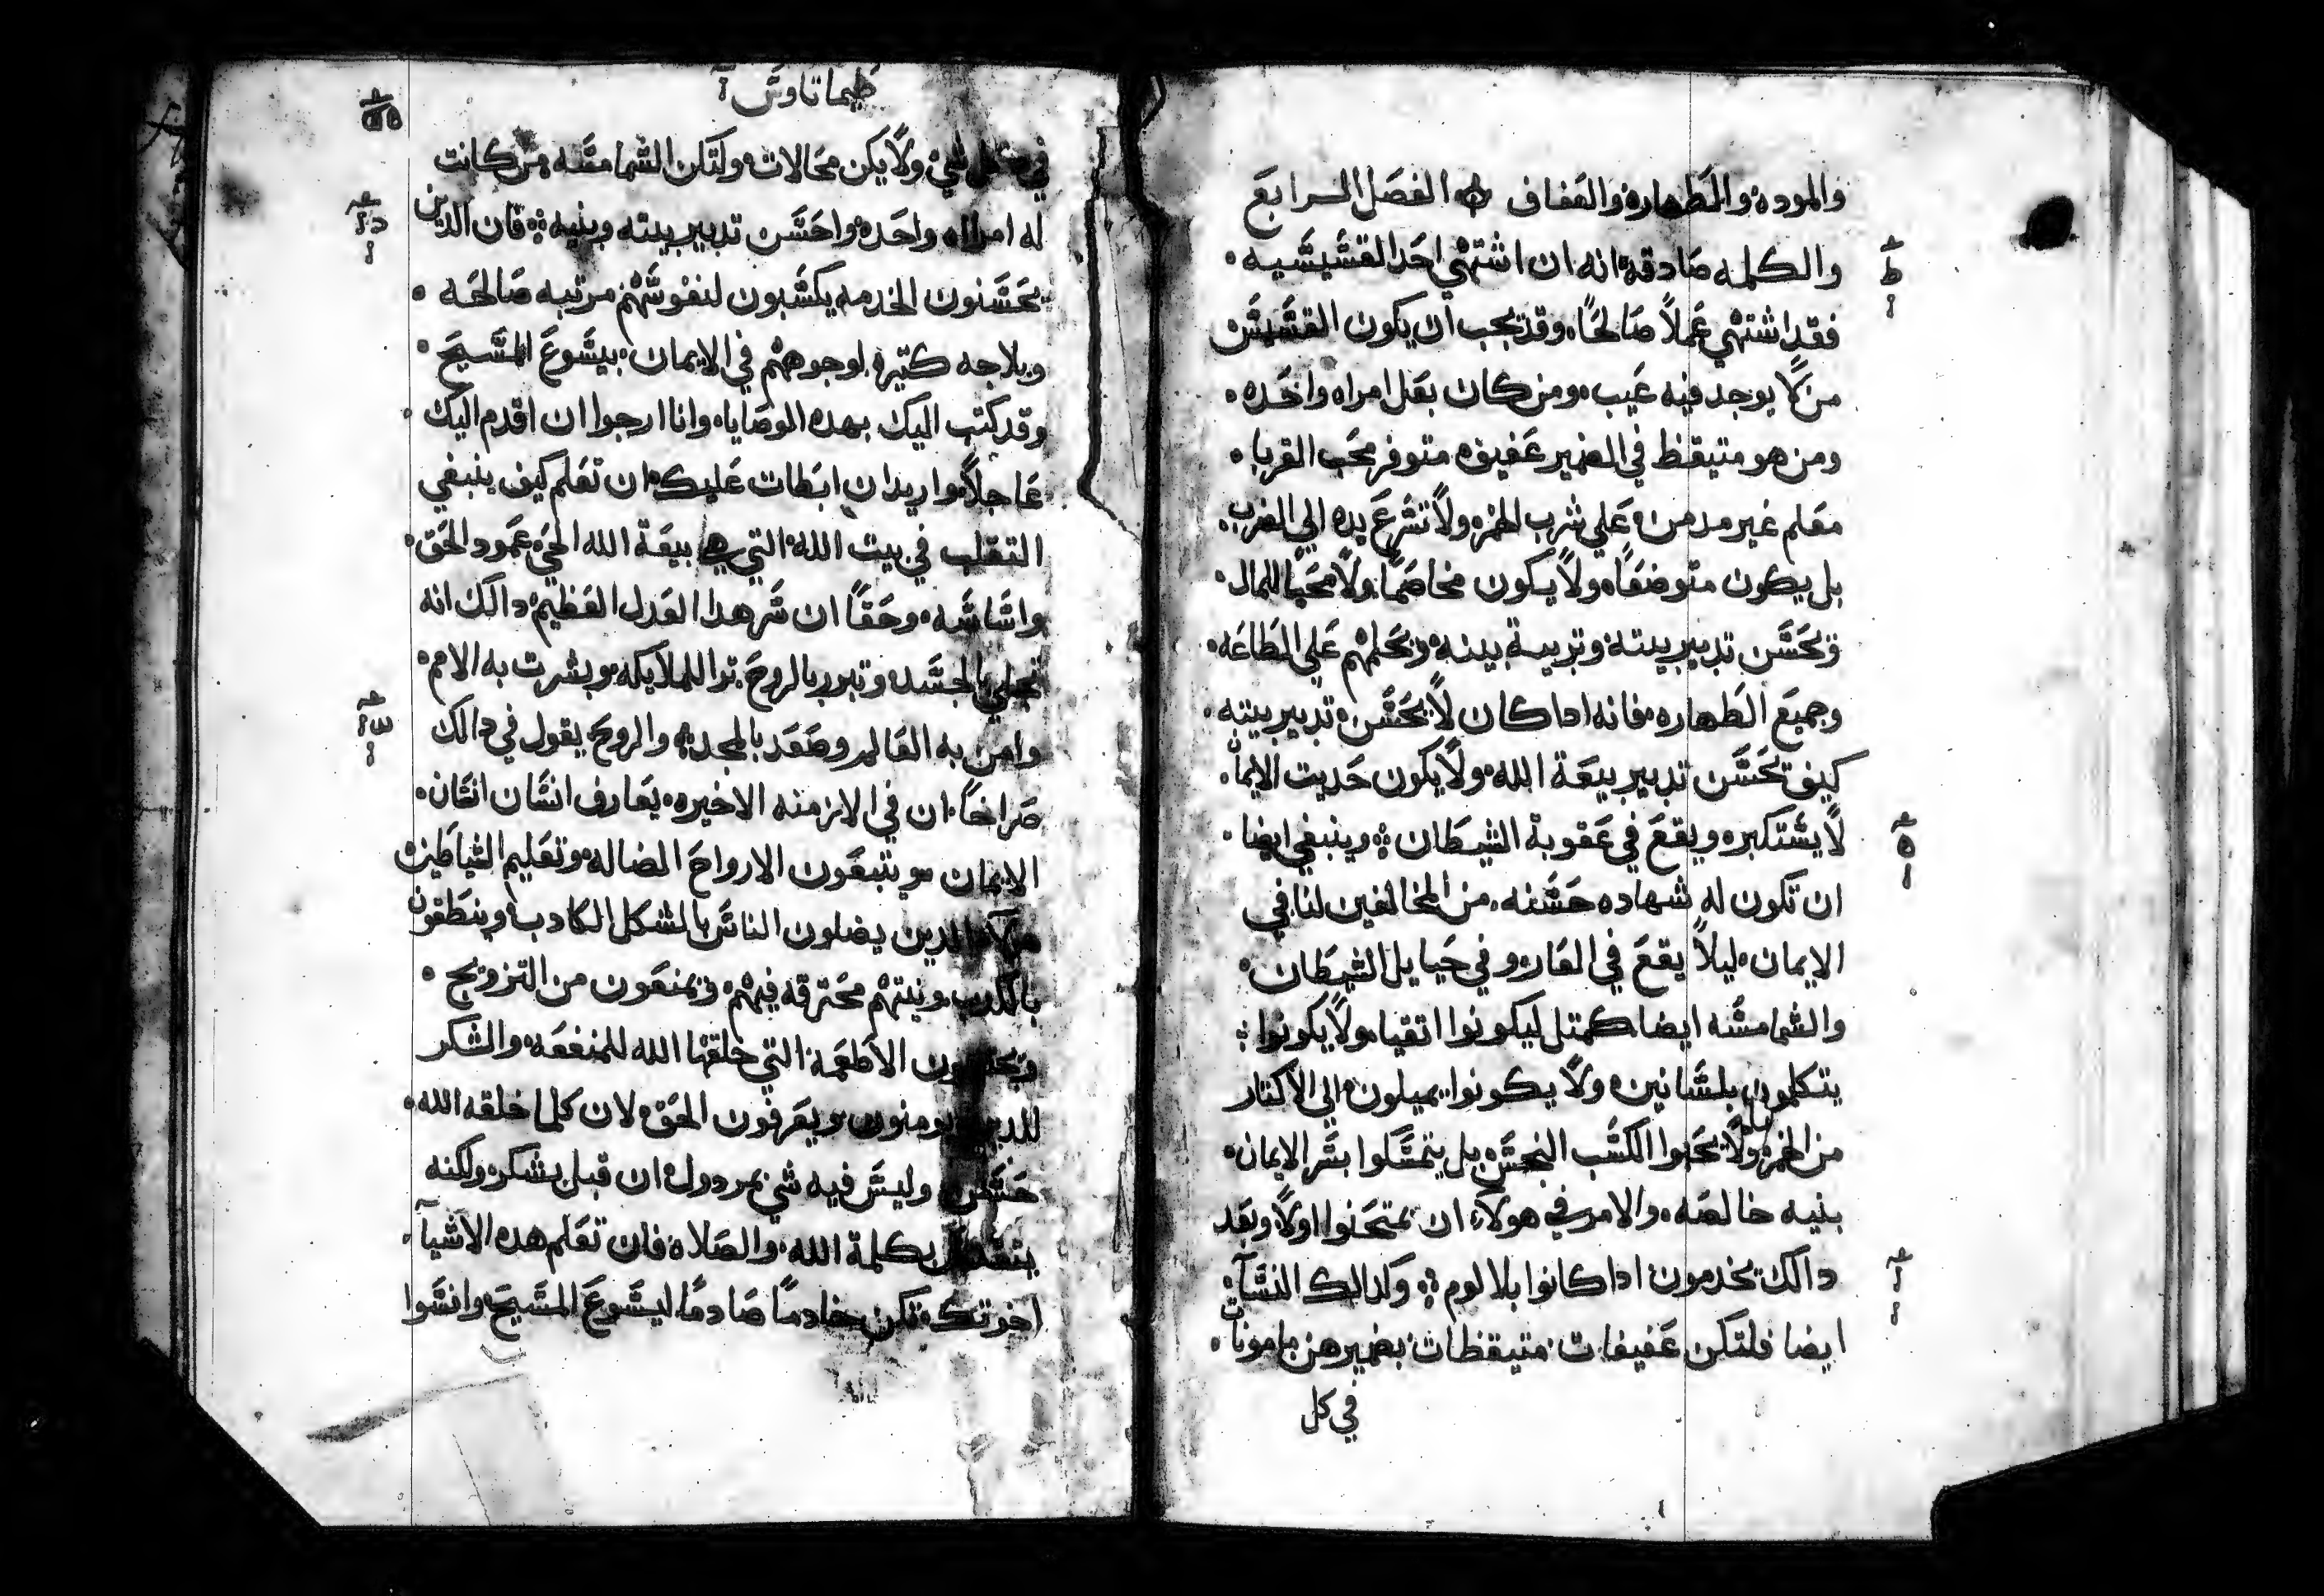 والموده والطهاره والعفاف الفصل الرابع
والكلمه صادقه انه ان اشتهي احد القشيشيه
فقد اشتهي عملاً صالحًا وقد يجب ان يكون القشيش
من لا يوجد فيه عيب ومن كان بعل امراه واحده
ومن هو متيقظ في الضمير عفيف متوفر محب الغربا
معلم غير مدمن علي شرب الخمر ولا تشرع يده الي الضرب
بل يكون متوضعًا ولا يكون مخاصمًا ولا محبًا للمال
ويحسن تدبير بيته وتربية بينه ويحملهم علي الطاعه
وجميع الطهاره فانه ادا كان لا يحسن تدبير بيته
كيف يحسن تدبير بيعة الله ولا يكون حديت الايمان
لا يستكبر ويقع في عقوبة الشيطان وينبغي ايضا
ان تكون له شهاده حسنه من المخالفين لنا في
الايمان ليلا يقع في العار وفي حبايل الشيطان
والشمامسه ايضا كمتل ليكونوا اتقيا ولا يكونوا
يتكلمون بلسانين ولا يكونوا يميلون الي الاكتار
من الخمر ولا يحبوا الكسب النجس بل يتمسكوا بسر الايمان
بنيه خالصه والامر في هولاء ان يمتحنوا اولاً وبعد
دالك يخدمون ادا كانوا بلا لوم وكدالك النسآ
ايضا فلتكن عفيفات متيقظات بضميرهن مامونات
في كل
طيماتاوس آ
في كل شي ولا يكن محالات ولتكن الشمامسه من كانت
له امراه واحده واحسن تدبير بيته وبنيه فان الدين
يحسنون الخدمه يكسبون لنفوسهم مرتبه صالحه
وبلاجه كتيره لوجوههم في الايمان بيسوع المسيح
وقد كتبت اليك بهده الوصايا وانا ارجوا ان اقدم اليك
عاجلاً واريد ان ابطات عليك ان تعلم كيف ينبغي
التقلب في بيت الله التي هي بيعة الله الحي عمود الحق
واساسه وحقًا ان سر هدا العدل العظيم دالك انه
تجلي بالجسد وتبرر بالروح تراا للملايكه وبشرت به الامم
وامن به العالم وصعد بالمجد والروح يقول في دالك
صراخًا ان في الازمنه الاخيره يفارق انسان انسان
الايمان ويتبعون الارواح الضاله وتعليم الشياطين
هولآ الدين يضلون الناس بالشكل الكادب وينطقون
بالكدب ونيتهم محترقه فيهم ويمنعون من التزويج
الاطعمة التي خلقها الله للمنفعه والشكر
للدين يومنون ويعرفون الحق لان كلما خلقه الله
حسن وليس فيه شي مردول ان قبل بشكر ولكنه
يتقدس بكلمة الله والصلاة فان تعلم هده الاشيآ
اخوتك تكن خادمًا صادمًا ليسوع المسيح وانسوا